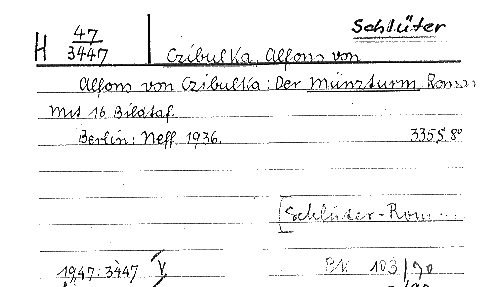 Schlüter
H 47/3447
Czibulka, Alfons von
Alfons von Czibulka: Der Münzturm. Roman
Mit 16 Bildtaf.
Berlin: Neff 1936. 335 S. 8°
[Schlüter-Rom...
1947:3447 V
BV 103/90